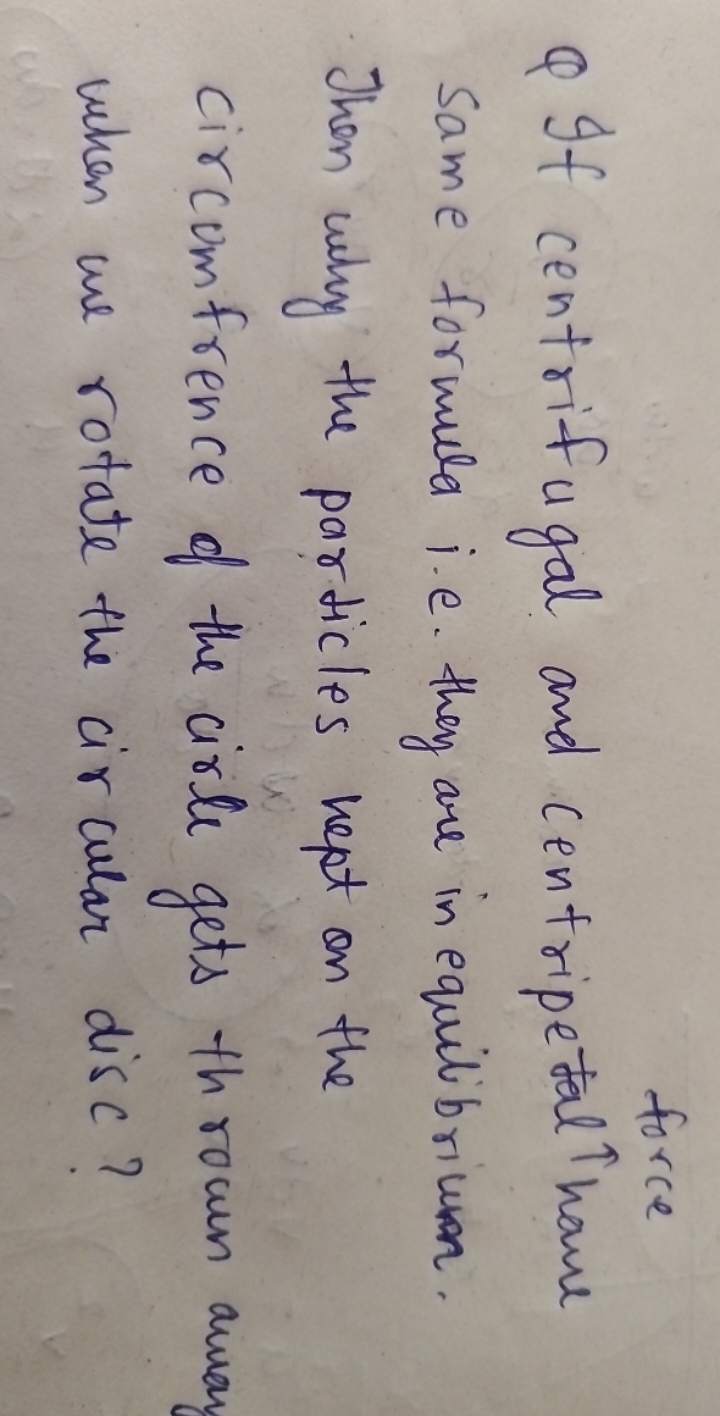 Q If centrifugal and centripetal ↑ have
force
same formula i.e. they are in equilibrium.
Then why the particles kept on the
circumfrence of the cirle gets thrown away
when we rotate the circular disc?